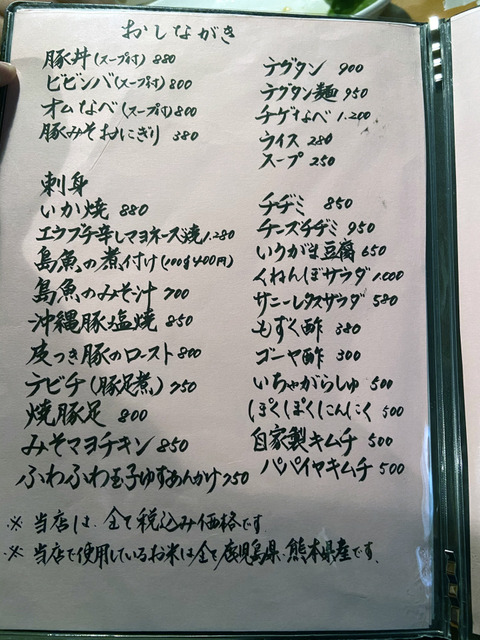 おしながき
豚丼(スープ付) 880
ビビンバ(スープ付) 800
オムなべ(スープ付) 800
豚みそおにぎり 380
テグタン 900
テグタン麺 950
チゲなべ 1.200
ライス 280
スープ 250
刺身
いか焼 880
エラブチ辛しマヨネーズ焼 1.280
島魚の煮付け(100g400円)
島魚のみそ汁 700
沖縄豚塩焼 850
皮つき豚のロースト 800
テビチ(豚足煮) 750
焼豚足 800
みそマヨチキン 850
ふわふわ玉子ゆずあんかけ 750
チヂミ 850
チーズチヂミ 950
いりがま豆腐 650
くねんぼサラダ 1.000
サニーレタスサラダ 580
もずく酢 380
ゴーヤ酢 300
いちゃがらしゅ 500
ぽくぽくにんにく 500
自家製キムチ 500
パパイヤキムチ 500
※ 当店は、全て税込み価格です
※ 当店で使用しているお米は全て鹿児島県・熊本県産です.